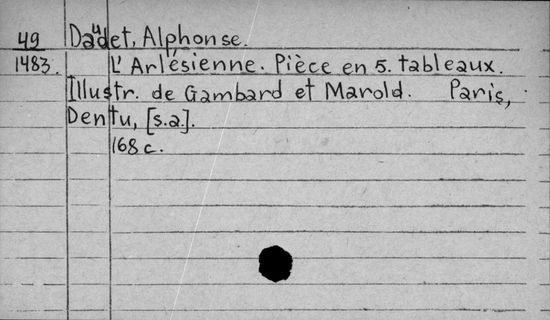 49 Daudet, Alphonse.
1483. L'Arlésienne. Pièce en 5. tableaux.
Illustr. de Gambard et Marold. Paris,
Dentu, [s.a.].
168 c.